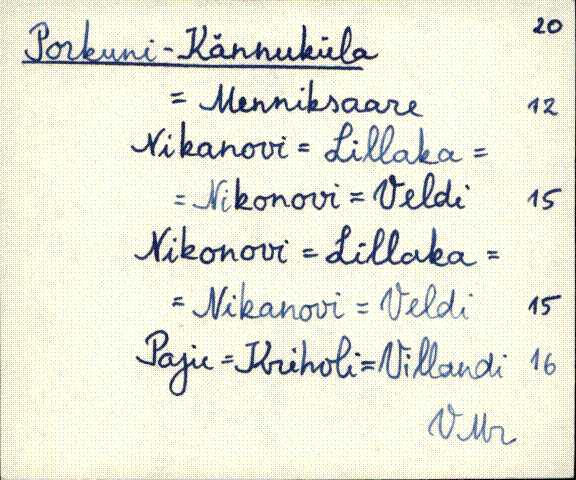 20
Porkuni - Kännuküla
= Menniksaare 12
Nikanovi = Lillaka =
= Nikonovi = Veldi 15
Nikonovi = Lillaka =
= Nikanovi = Veldi 15
Paju = Kriholi = Villandi 16
VMr